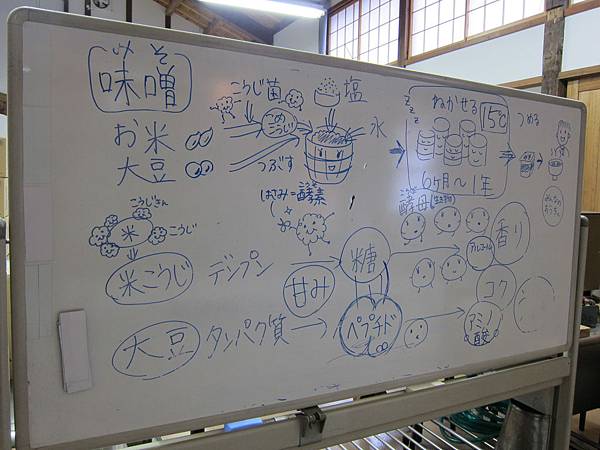 みそ
味噌
お米
大豆
こうじ菌
こめ
こうじ
つぶす
塩
水
z z z
ねかせる
15℃
6ヶ月〜1年
つめる
みんなの
おうちへ
はさみ=酵素
こうそ
こうぼ
酵母(生き物)
こうじきん
米
こうじ
米こうじ
デンプン
糖
甘み
アルコール
香り
コク
大豆
タンパク質
ペプチド
アミノ
酸